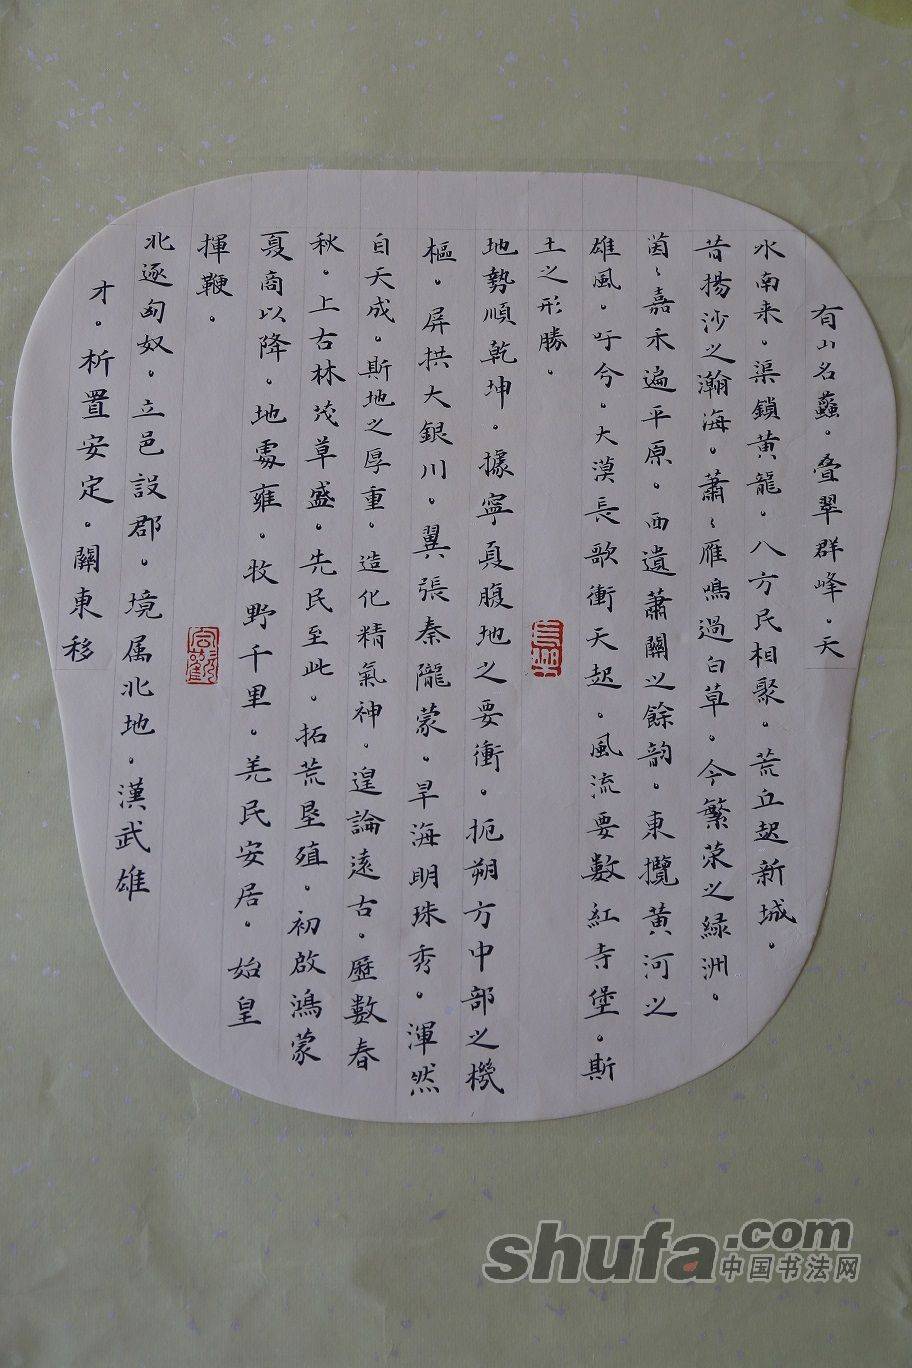 有山名蠡。叠翠群峰。天
水南来。渠鎖黄龍。八方民相聚。荒丘起新城。
昔揚沙之瀚海。蕭〻雁鳴過白草。今繁荣之緑洲。
茵〻嘉禾遍平原。西遺蕭關以餘韵。東攬黄河之
雄風。吁兮。大漠長歌衝天起。風流要數紅寺堡。斯
土之形勝。
地勢順乾坤。據寧夏腹地之要衝。扼朔方中部之機
樞。屏拱大銀川。翼張秦隴蒙。旱海明珠秀。渾然
自天成。斯地之厚重。造化精氣神。遑論遠古。歷數春
秋。上古林茂草盛。先民至此。拓荒垦殖。初啟鴻蒙
夏商以降。地處雍。牧野千里。羌民安居。始皇
揮鞭。
北逐匈奴。立邑設郡。境属北地。漢武雄
才。析置安定。關東移
shufa.com
中国书法网